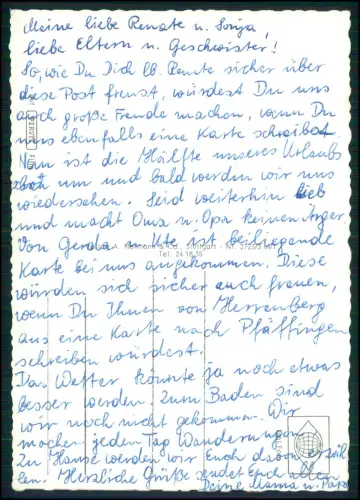 Meine liebe Renate u. Sonja,
liebe Eltern u. Geschwister!
So, wie Du Dich lb. Renate sicher über
diese Post freust, würdest Du uns
auch große Freude machen, wenn Du
uns ebenfalls eine Karte schreibst.
Nun ist die Hälfte unseres Urlaubs
schon um und bald werden wir uns
wiedersehen. Seid weiterhin lieb
und macht Oma u. Opa keinen Ärger
Von Gerda u. Ute ist beiliegende
Karte bei uns angekommen. Diese
würden sich sicher auch freuen,
wenn Du Ihnen von Herrenberg
aus eine Karte nach Pfäffingen
schreiben würdest.
Das Wetter könnte ja noch etwas
besser werden. Zum Baden sind
wir noch nicht gekommen. Wir
machen jeden Tag Wanderungen.
Zu Hause werden wir Euch davon erzäh-
len. Herzliche Grüße sendet Euch allen
Deine Mama u. Papa